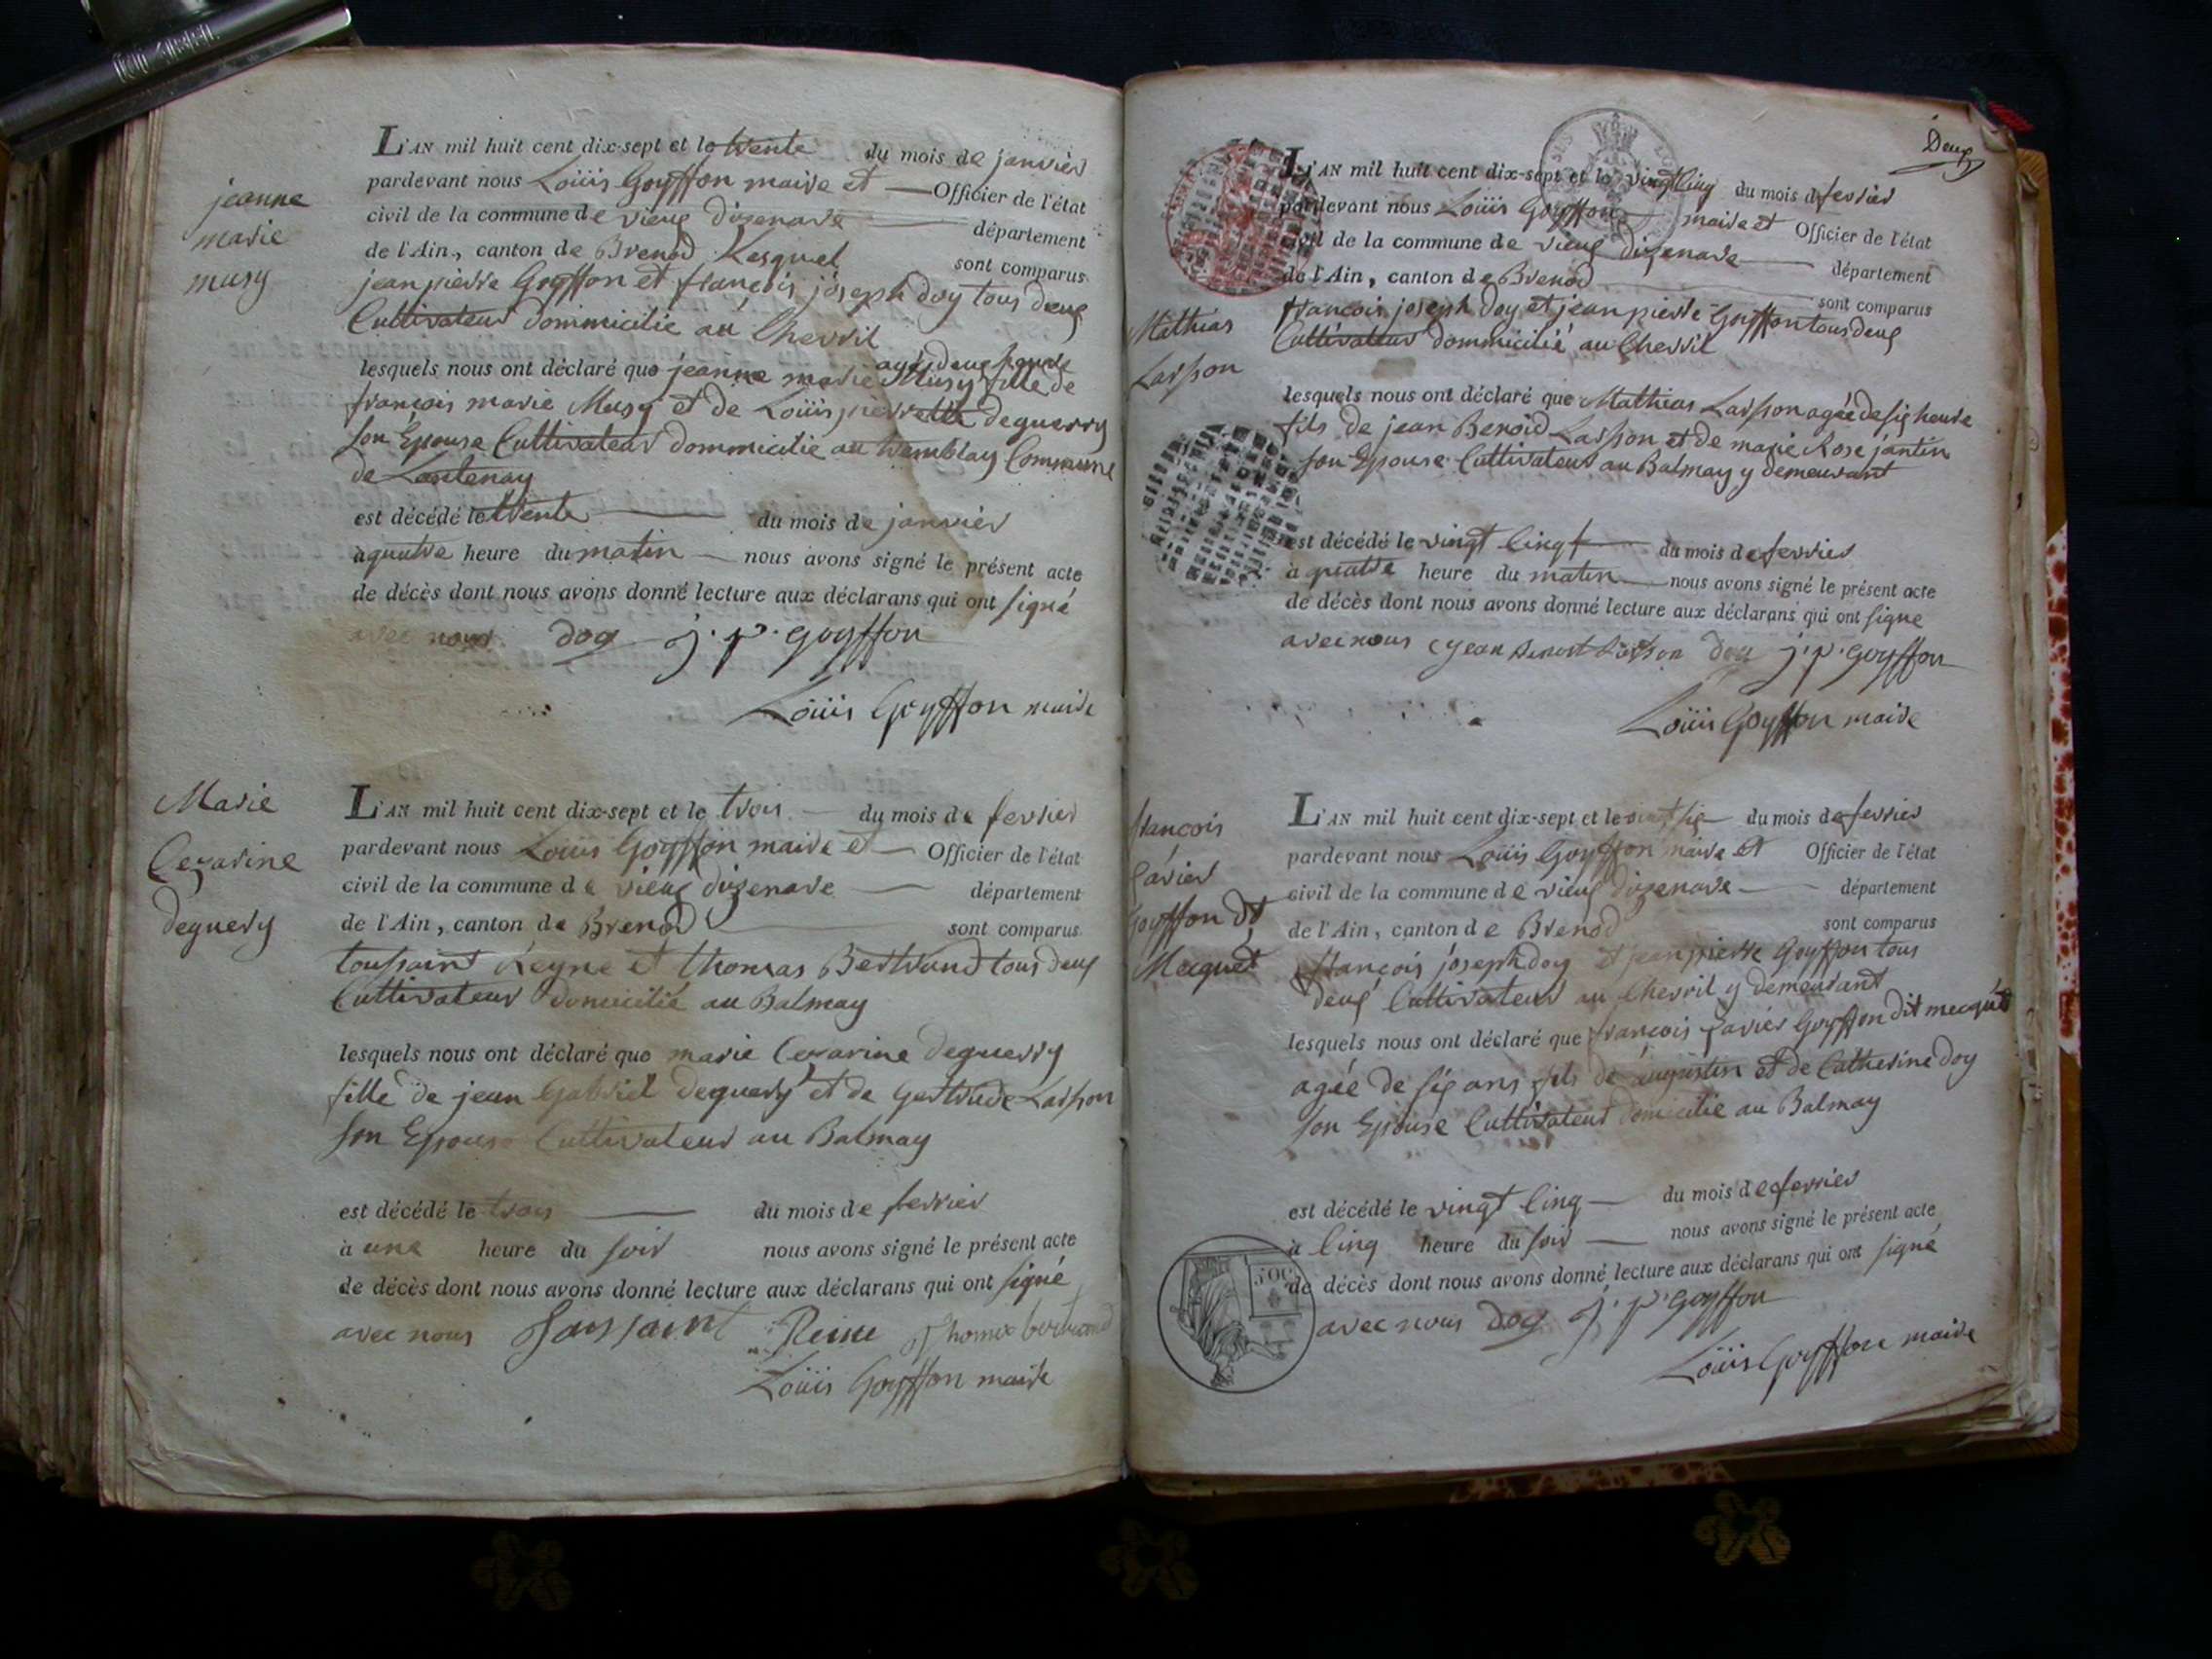 jeanne
marie
musy
L'AN mil huit cent dix-sept et le trente du mois de janvier
pardevant nous Loüis Goyffon maire et Officier de l'état
civil de la commune de vieux dizenave département
de l'Ain, canton de Brenod Lesquel sont comparus
jean pierre Goyffon et françois joseph doy tous deux
Cultivateur dommicilie au Chevril
agée deux heure
lesquels nous ont déclaré que jeanne marie Musy fille de
françois marie Musy et de Loüis pierrette deguerry
son Epouse Cultivateur dommicilie au tremblay Commune
de Lantenay
est décédé le trente du mois de janvier
à quatre heure du matin nous avons signé le présent acte
de décès dont nous avons donné lecture aux déclarans qui ont signé
avec nous doy j. p. goyffon
Loüis Goyffon maire
Marie
Cezarine
deguery
L'AN mil huit cent dix-sept et le trois du mois de fevrier
pardevant nous Loüis Goyffon maire et Officier de l'état
civil de la commune de vieux dizenave département
de l'Ain, canton de Brenod sont comparus
toussaint Reyne et thomas Bertrand tous deux
Cultivateur domicilié au Balmay
lesquels nous ont déclaré que marie Cezarine deguerry
fille de jean Gabriel deguery et de gertrude Larsson
son Epouse Cultivateur au Balmay
est décédé le trois du mois de fevrier
à une heure du soir nous avons signé le présent acte
de décès dont nous avons donné lecture aux déclarans qui ont signé
avec nous toussaint Reine Thomas bertrand
Loüis Goyffon maire
Deux
Mathias
Larsson
L'AN mil huit cent dix-sept et le vingt cinq du mois de fevrier
pardevant nous Loüis Goyffon maire et Officier de l'état
civil de la commune de vieux dizenave département
de l'Ain, canton de Brenod sont comparus
françois joseph doy et jean pierre Goyffon tous deux
Cultivateur dommicilié au Chevril
lesquels nous ont déclaré que Mathias Larsson agée de six heure
fils de jean Benoid Larsson et de marie Rose jantin
son Epouse Cultivateur au Balmay y demeurant
est décédé le vingt cinq du mois de fevrier
à quatre heure du matin nous avons signé le présent acte
de décès dont nous avons donné lecture aux déclarans qui ont signe
avec nous jean Benoit Larsson doy j. p. goyffon
Loüis Goyffon maire
françois
Xavier
Goyffon dt
Mecquet
L'AN mil huit cent dix-sept et le vingt six du mois de fevrier
pardevant nous Loüis Goyffon maire et Officier de l'état
civil de la commune de vieux dizenave département
de l'Ain, canton de Brenod sont comparus
françois joseph doy et jean pierre Goyffon tous
deux Cultivateur au Chevril y demeurant
lesquels nous ont déclaré que françois Xavier Goyffon dit mecquet
agée de six ans fils de augustin et de Catherine doy
son Epouse Cultivateur domicilie au Balmay
est décédé le vingt cinq du mois de fevrier
à cinq heure du soir nous avons signé le présent acte
de décès dont nous avons donné lecture aux déclarans qui ont signé
avec nous doy j. p. goyffon
Loüis Goyffon maire
50C